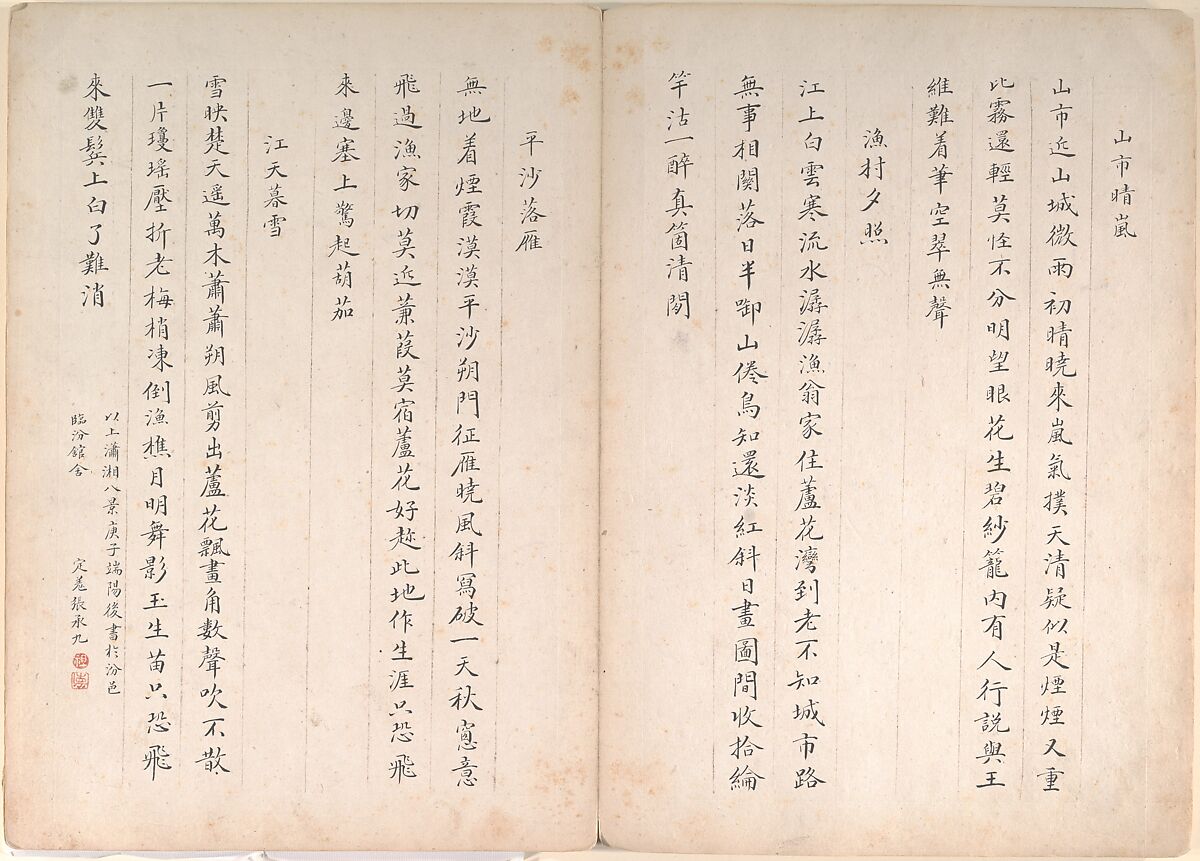 山市晴嵐
山市近山城微雨初晴曉來嵐氣撲天清疑似是煙煙又重
比霧還輕莫怪不分明望眼花生碧紗籠內有人行説與王
維難着筆空翠無聲
漁村夕照
江上白雲寒流水潺潺漁翁家住蘆花灣到老不知城市路
無事相關落日半啣山倦鳥知還淡紅斜日畫圖間收拾綸
竿沽一醉真箇清閒
平沙落雁
無地着煙霞漠漠平沙朔門征雁曉風斜冩破一天秋意
飛過漁家切莫近蒹葭莫宿蘆花好趂此地作生涯只恐飛
來邊塞上驚起葫茄
江天暮雪
雪映楚天遥萬木蕭蕭朔風剪出蘆花飄畫角數聲吹不散
一片瓊瑶壓折老梅梢凍倒漁樵月明舞影玉生苗只恐飛
來雙鬂上白了難消
以上瀟湘八景庚子端陽後書扵汾邑
臨汾館舍 定菴張承九